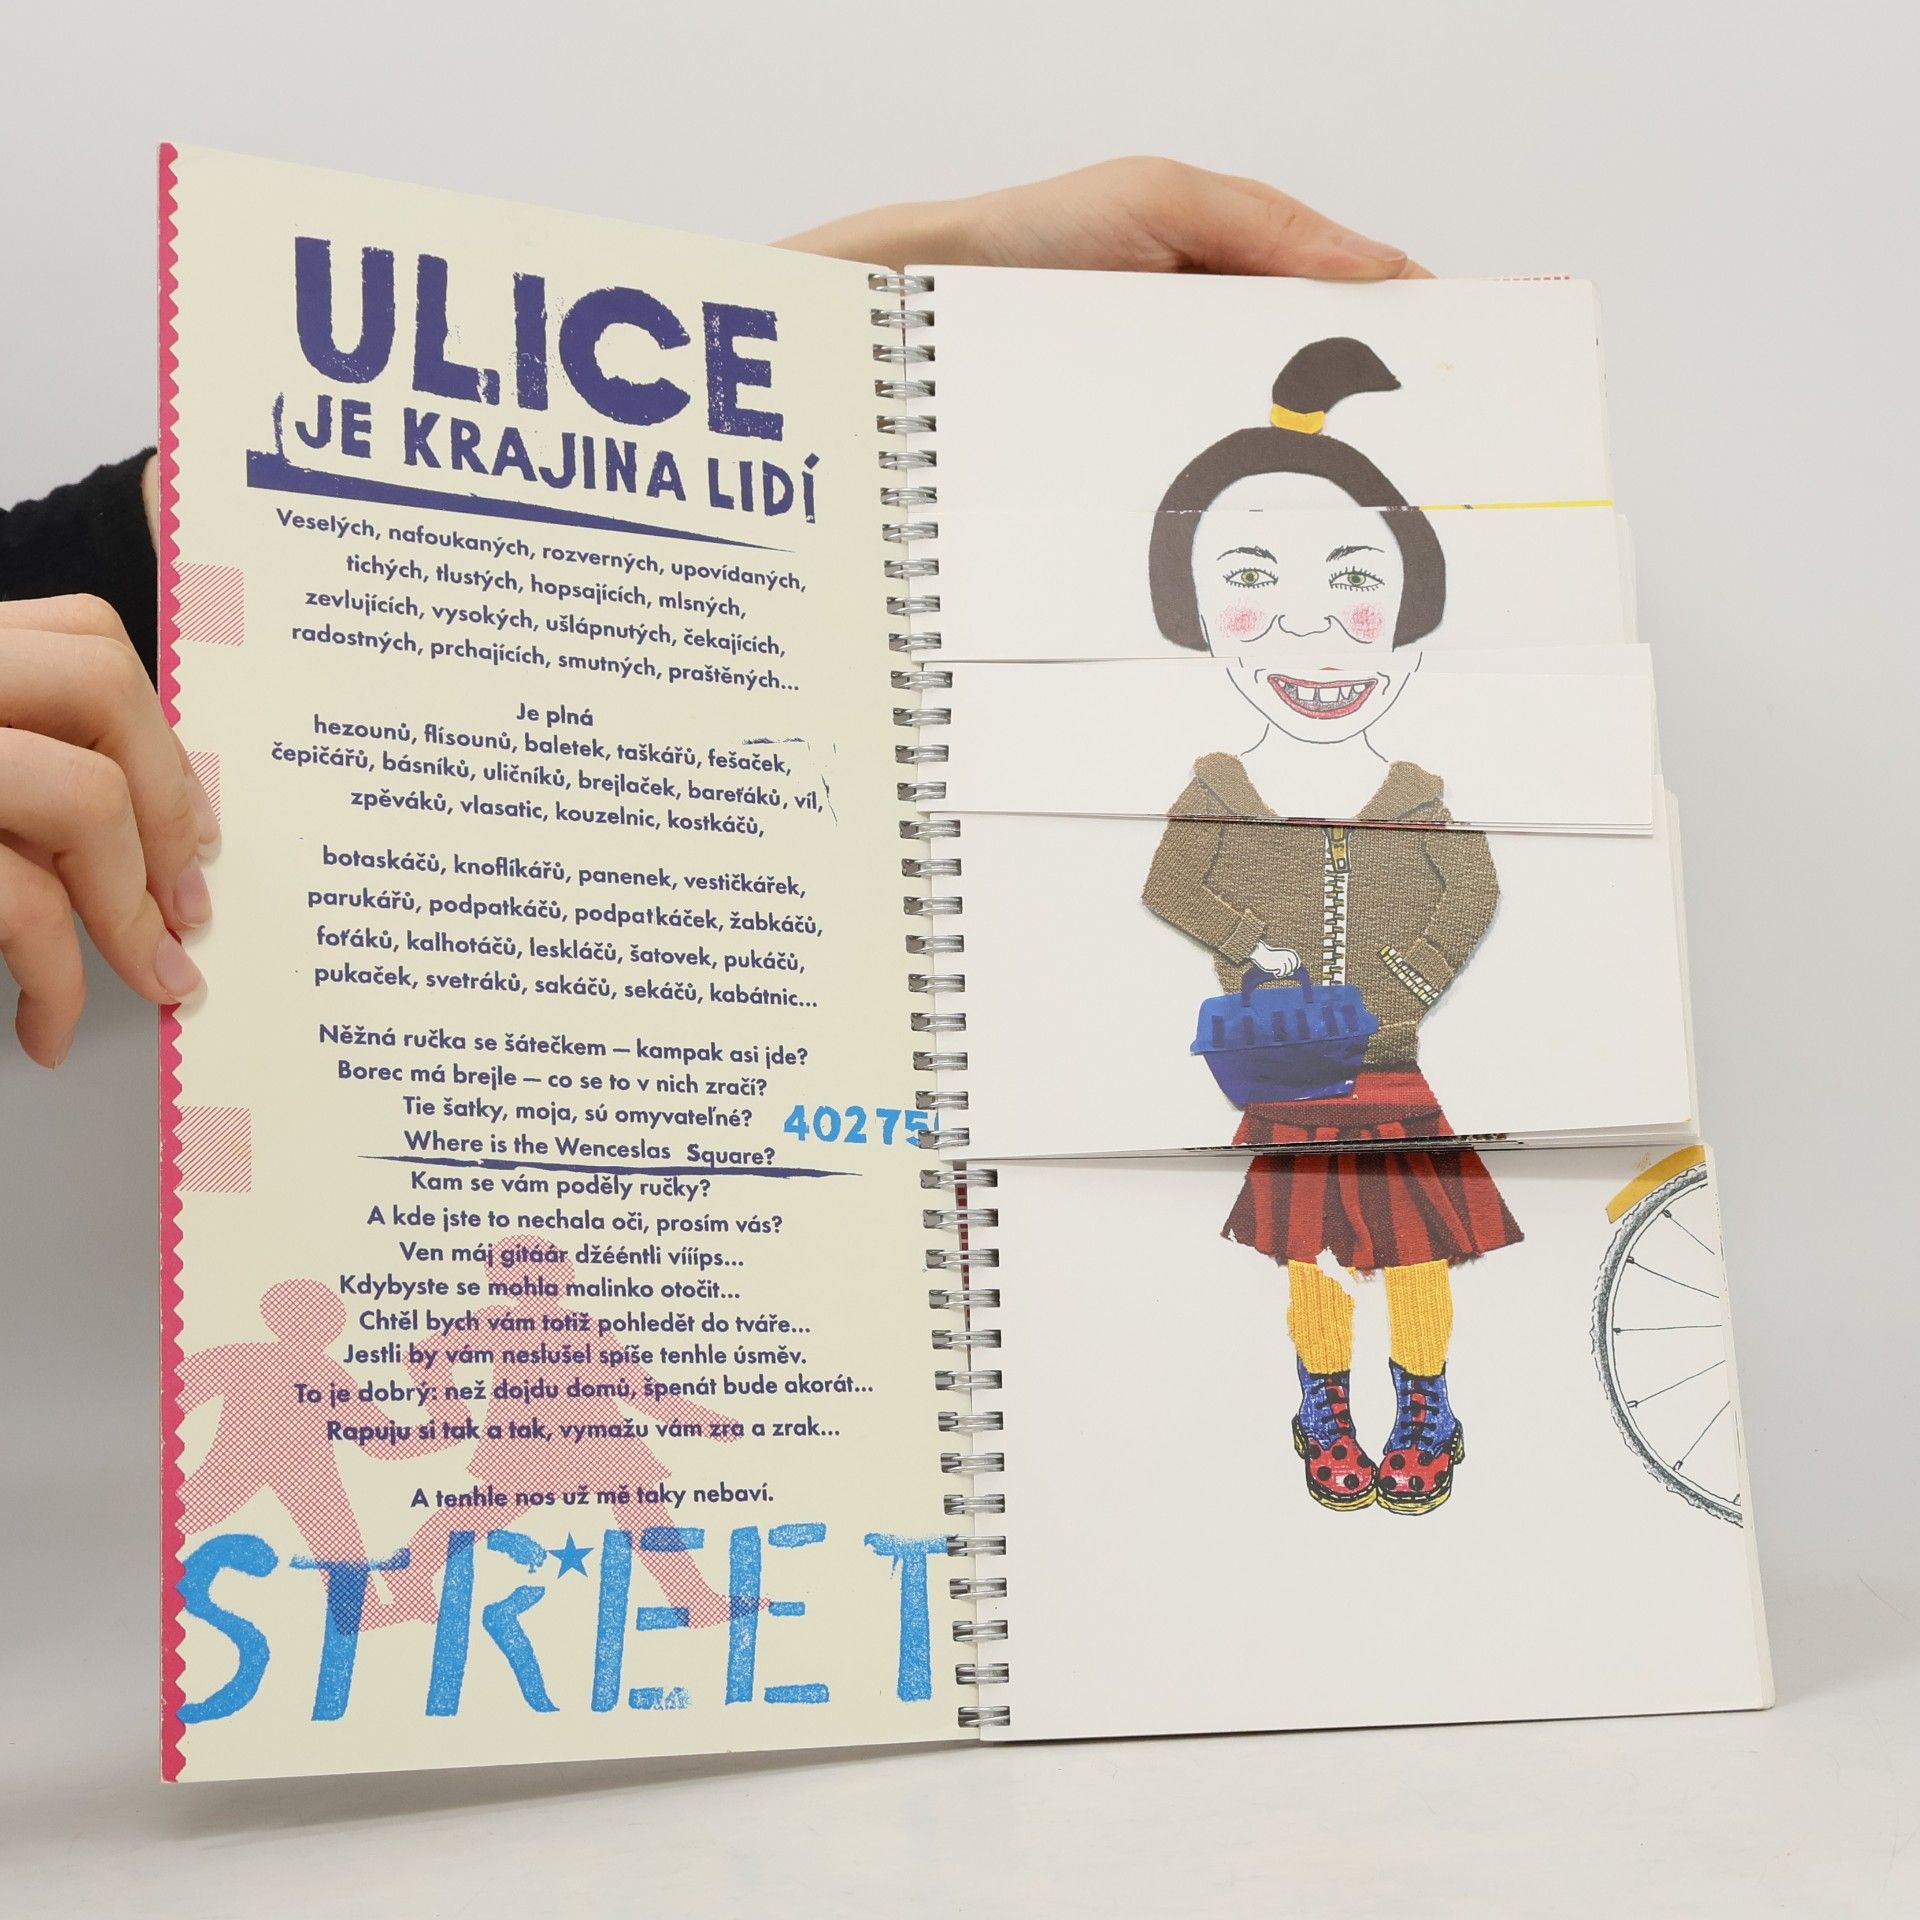 ULICE
JE KRAJINA LIDÍ
Veselých, nafoukaných, rozverných, upovídaných,
tichých, tlustých, hopsajících, mlsných,
zevlujících, vysokých, ušlápnutých, čekajících,
radostných, prchajících, smutných, praštěných...
Je plná
hezounů, flísounů, baletek, taškářů, fešaček,
čepičářů, básníků, uličníků, brejlaček, bareťáků, víl,
zpěváků, vlasatic, kouzelnic, kostkáčů,
botaskáčů, knoflíkářů, panenek, vestičkářek,
parukářů, podpatkáčů, podpatkáček, žabkáčů,
foťáků, kalhotáčů, leskláčů, šatovek, pukáčů,
pukaček, svetráků, sakáčů, sekáčů, kabátnic...
Něžná ručka se šátečkem – kampak asi jde?
Borec má brejle – co se to v nich zračí?
Tie šatky, moja, sú omyvateľné?
40275
Where is the Wenceslas Square?
Kam se vám poděly ručky?
A kde jste to nechala oči, prosím vás?
Ven máj gitáár džééntli víííps...
Kdybyste se mohla malinko otočit...
Chtěl bych vám totiž pohledět do tváře...
Jestli by vám neslušel spíše tenhle úsměv.
To je dobrý: než dojdu domů, špenát bude akorát...
Rapuju si tak a tak, vymažu vám zra a zrak...
A tenhle nos už mě taky nebaví.
STREET